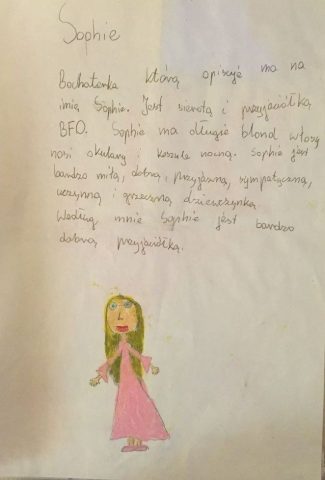 Sophie
Bochaterka którą opisuję ma na
imię Sophie. Jest sierotą i przyjaciółką
BFO. Sophie ma długie blond włosy
nosi okulary i koszule nocną. Sophie jest
bardzo miłą, dobrą i przyjazną, sympatyczną,
uczynną i grzeczną dziewczynką.
Według mnie Sophie jest bardzo
dobrą przyjaciółką.